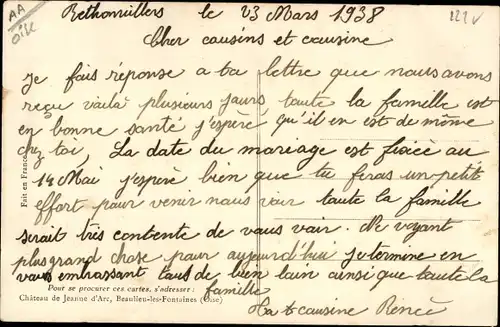 AA
Oise
Rethonvillers le 23 Mars 1938
121 V
Cher cousins et cousine
Je fais réponse a ta lettre que nous avons
reçu voilà plusieurs jours, toute la famille est
en bonne santé j'espère qu'il en est de même
chez toi, La date du mariage est fixée au
14 Mai j'espère bien que tu feras un petit
effort pour venir nous voir toute la famille
serait très contente de vous voir. Ne voyant
plus grand chose pour aujourd'hui je termine en
vous embrassant tous de bien loin ainsi que toute la
famille
Ta t cousine Renée
Fait en France
Pour se procurer ces cartes, s'adresser :
Château de Jeanne d'Arc, Beaulieu-les-Fontaines (Oise)